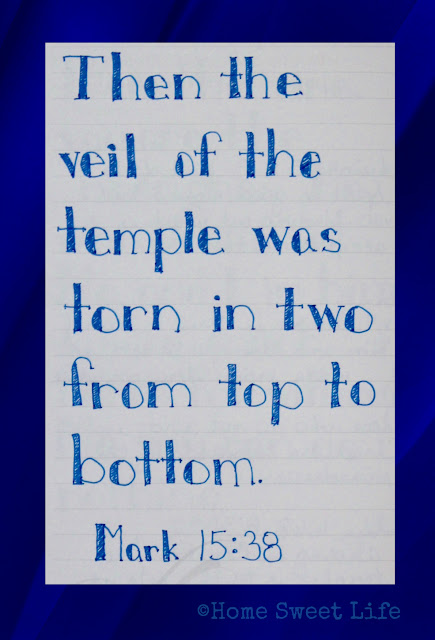 Then the
veil of the
temple was
torn in two
from top to
bottom.
Mark 15:38
©Home Sweet Life